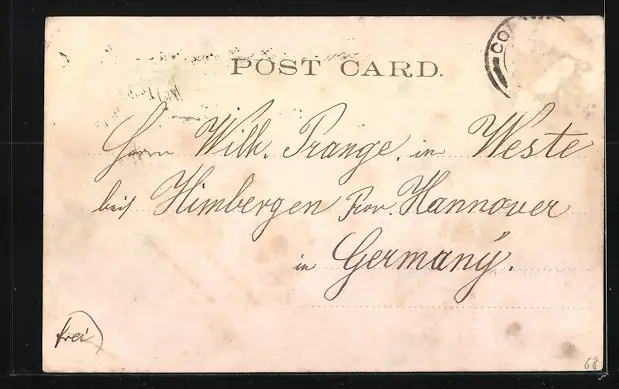 POST CARD.
CO
Herrn Wilh. Prange. in Weste
bei Himbergen Prov. Hannover
in Germany.
frei
68